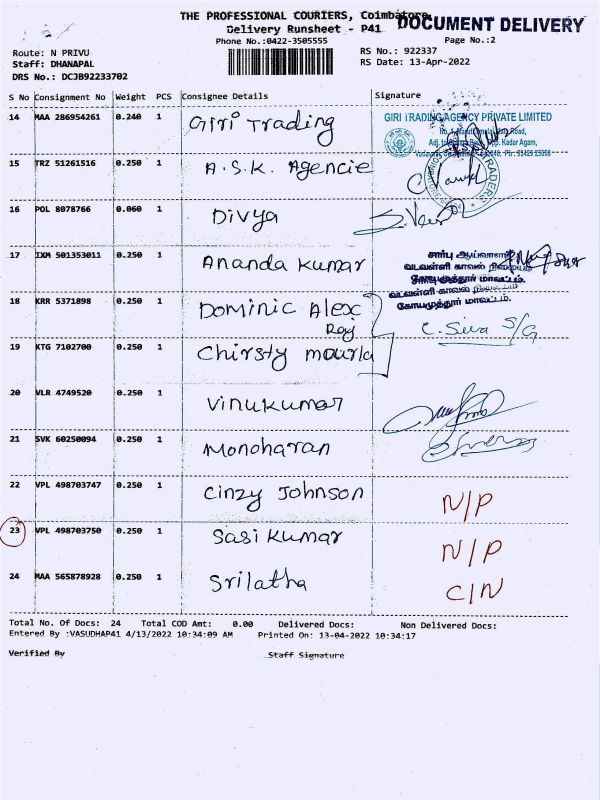 THE PROFESSIONAL COURIERS, Coimbatore
DOCUMENT DELIVERY
Delivery Runsheet - P41
Phone No.:0422-3505555
Page No.:2
Route: N PRIVU
Staff: DHANAPAL
DRS No.: DCJB92233702
RS No.: 922337
RS Date: 13-Apr-2022
S No Consignment No Weight PCS Consignee Details Signature
14 MAA 286954261 0.240 1 Giri Trading
GIRI TRADING AGENCY PRIVATE LIMITED
15 TRZ 51261516 0.250 1 A.S.K. Agencie
TRADERS
16 POL 8078766 0.060 1 Divya
17 IXM 501353011 0.250 1 Ananda Kumar
சார்பு ஆய்வாளர்
வடவள்ளி காவல் நிலையம்
கோயமுத்தூர் மாவட்டம்.
வடவள்ளி காவல் நிலையம்
கோயமுத்தூர் மாவட்டம்.
18 KRR 5371898 0.250 1 Dominic Alex
Raj
C. Siva S/G
19 KTG 7102700 0.250 1 Chirsty mourla
20 VLR 4749520 0.250 1 Vinukumar
21 SVK 60250094 0.250 1 Monoharan
22 VPL 498703747 0.250 1 Cinzy Johnson N/P
23 VPL 498703750 0.250 1 Sasi Kumar N/P
24 MAA 565878928 0.250 1 Srilatha C/N
Total No. Of Docs: 24 Total COD Amt: 0.00 Delivered Docs: Non Delivered Docs:
Entered By :VASUDHAP41 4/13/2022 10:34:09 AM Printed On: 13-04-2022 10:34:17
Verified By Staff Signature